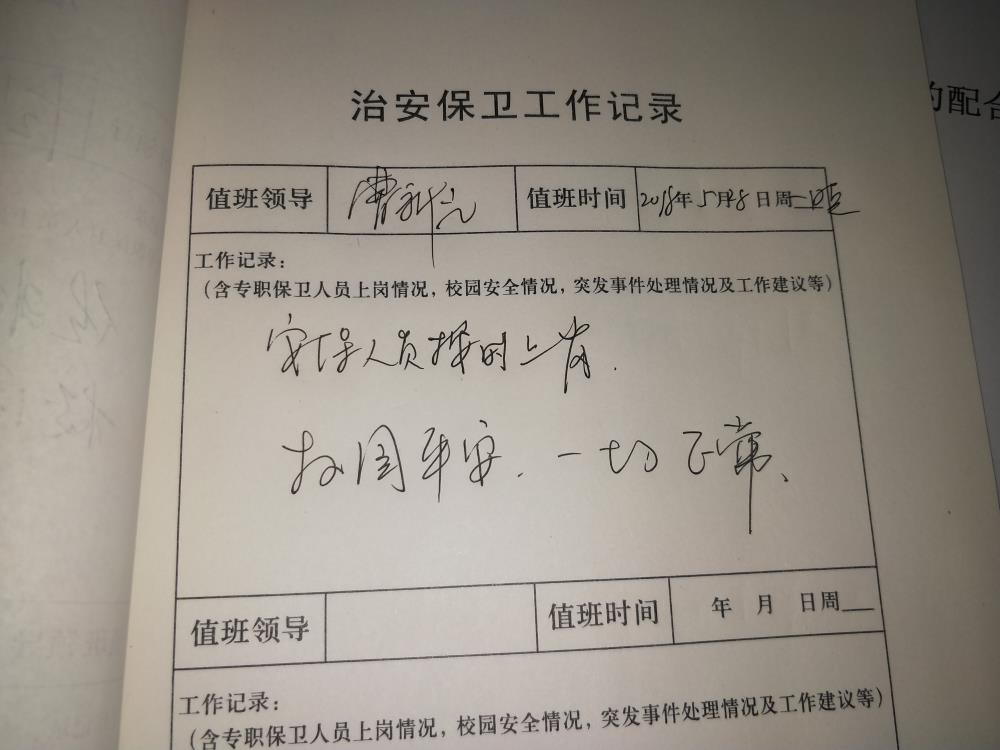 的配合
治安保卫工作记录
值班领导 曹 值班时间 2018年5月8日周二
工作记录：
（含专职保卫人员上岗情况，校园安全情况，突发事件处理情况及工作建议等）
安保人员按时上岗.
校园平安.一切正常、
值班领导 值班时间 年 月 日周
工作记录：
（含专职保卫人员上岗情况，校园安全情况，突发事件处理情况及工作建议等）